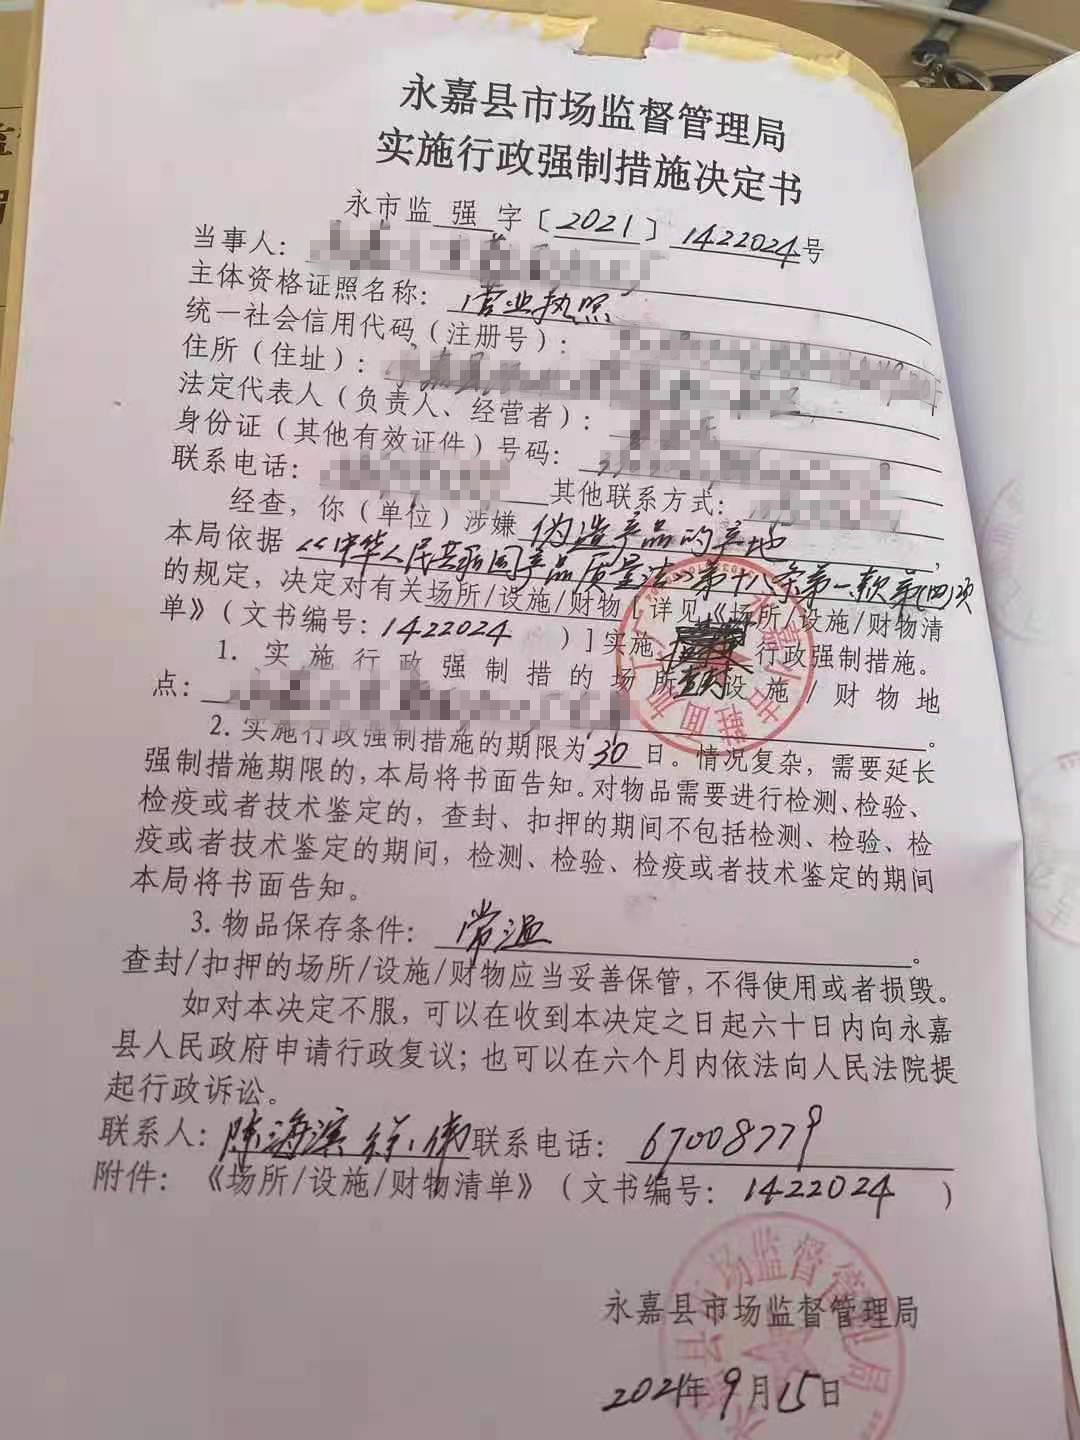 永嘉县市场监督管理局
实施行政强制措施决定书
永市监 强 字〔2021〕1422024号
当事人:
主体资格证照名称:营业执照
统一社会信用代码(注册号):
住所(住址):
法定代表人(负责人、经营者):
身份证(其他有效证件)号码:
联系电话: 其他联系方式:
经查,你(单位)涉嫌 伪造产品的产地,
本局依据《中华人民共和国产品质量法》第十八条第一款第(四)项
的规定,决定对有关场所/设施/财物[详见《场所/设施/财物清
单》(文书编号:1422024 )]实施 查封 行政强制措施。
1.实施行政强制措的场所/设施/财物地
点: 。
2.实施行政强制措施的期限为30日。情况复杂,需要延长
强制措施期限的,本局将书面告知。对物品需要进行检测、检验、
检疫或者技术鉴定的,查封、扣押的期间不包括检测、检验、检
疫或者技术鉴定的期间,检测、检验、检疫或者技术鉴定的期间
本局将书面告知。
3.物品保存条件:常温。
查封/扣押的场所/设施/财物应当妥善保管,不得使用或者损毁。
如对本决定不服,可以在收到本决定之日起六十日内向永嘉
县人民政府申请行政复议;也可以在六个月内依法向人民法院提
起行政诉讼。
联系人:陈海滨 联系电话:67008779
附件:《场所/设施/财物清单》(文书编号:1422024 )
永嘉县市场监督管理局
2021年9月15日